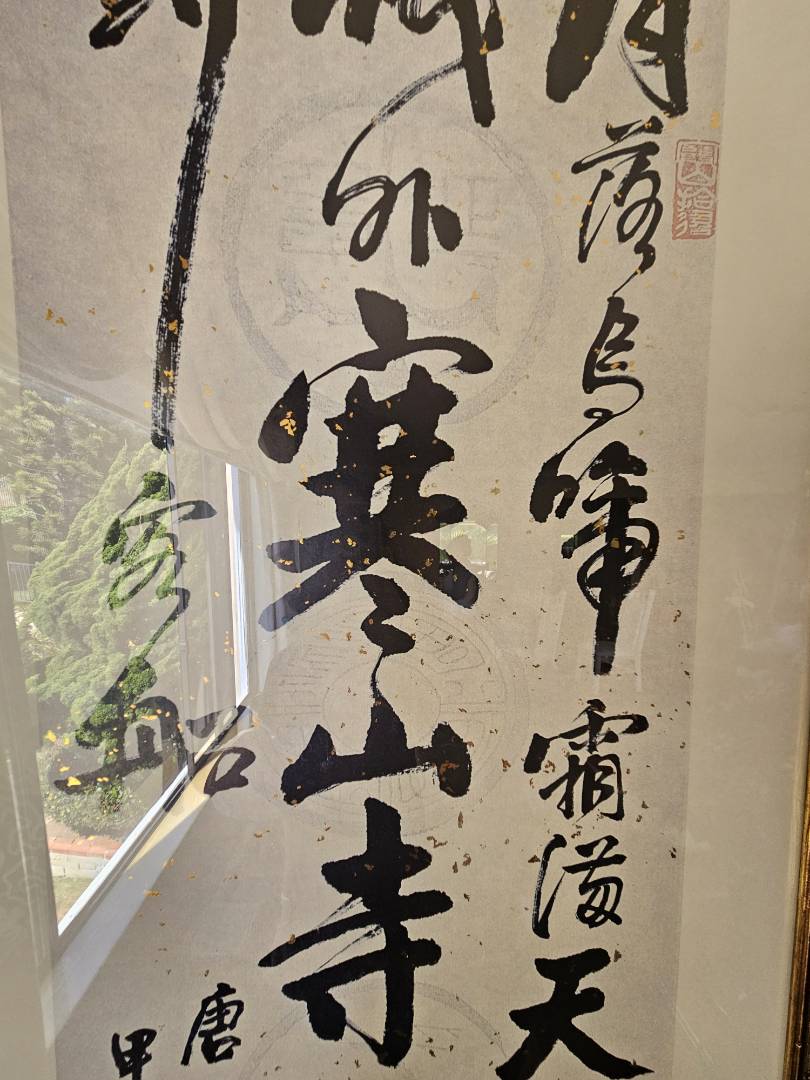 月落烏啼霜滿天
城外寒山寺
客船
唐
甲